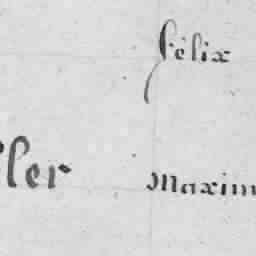 félix
ler
Maxim